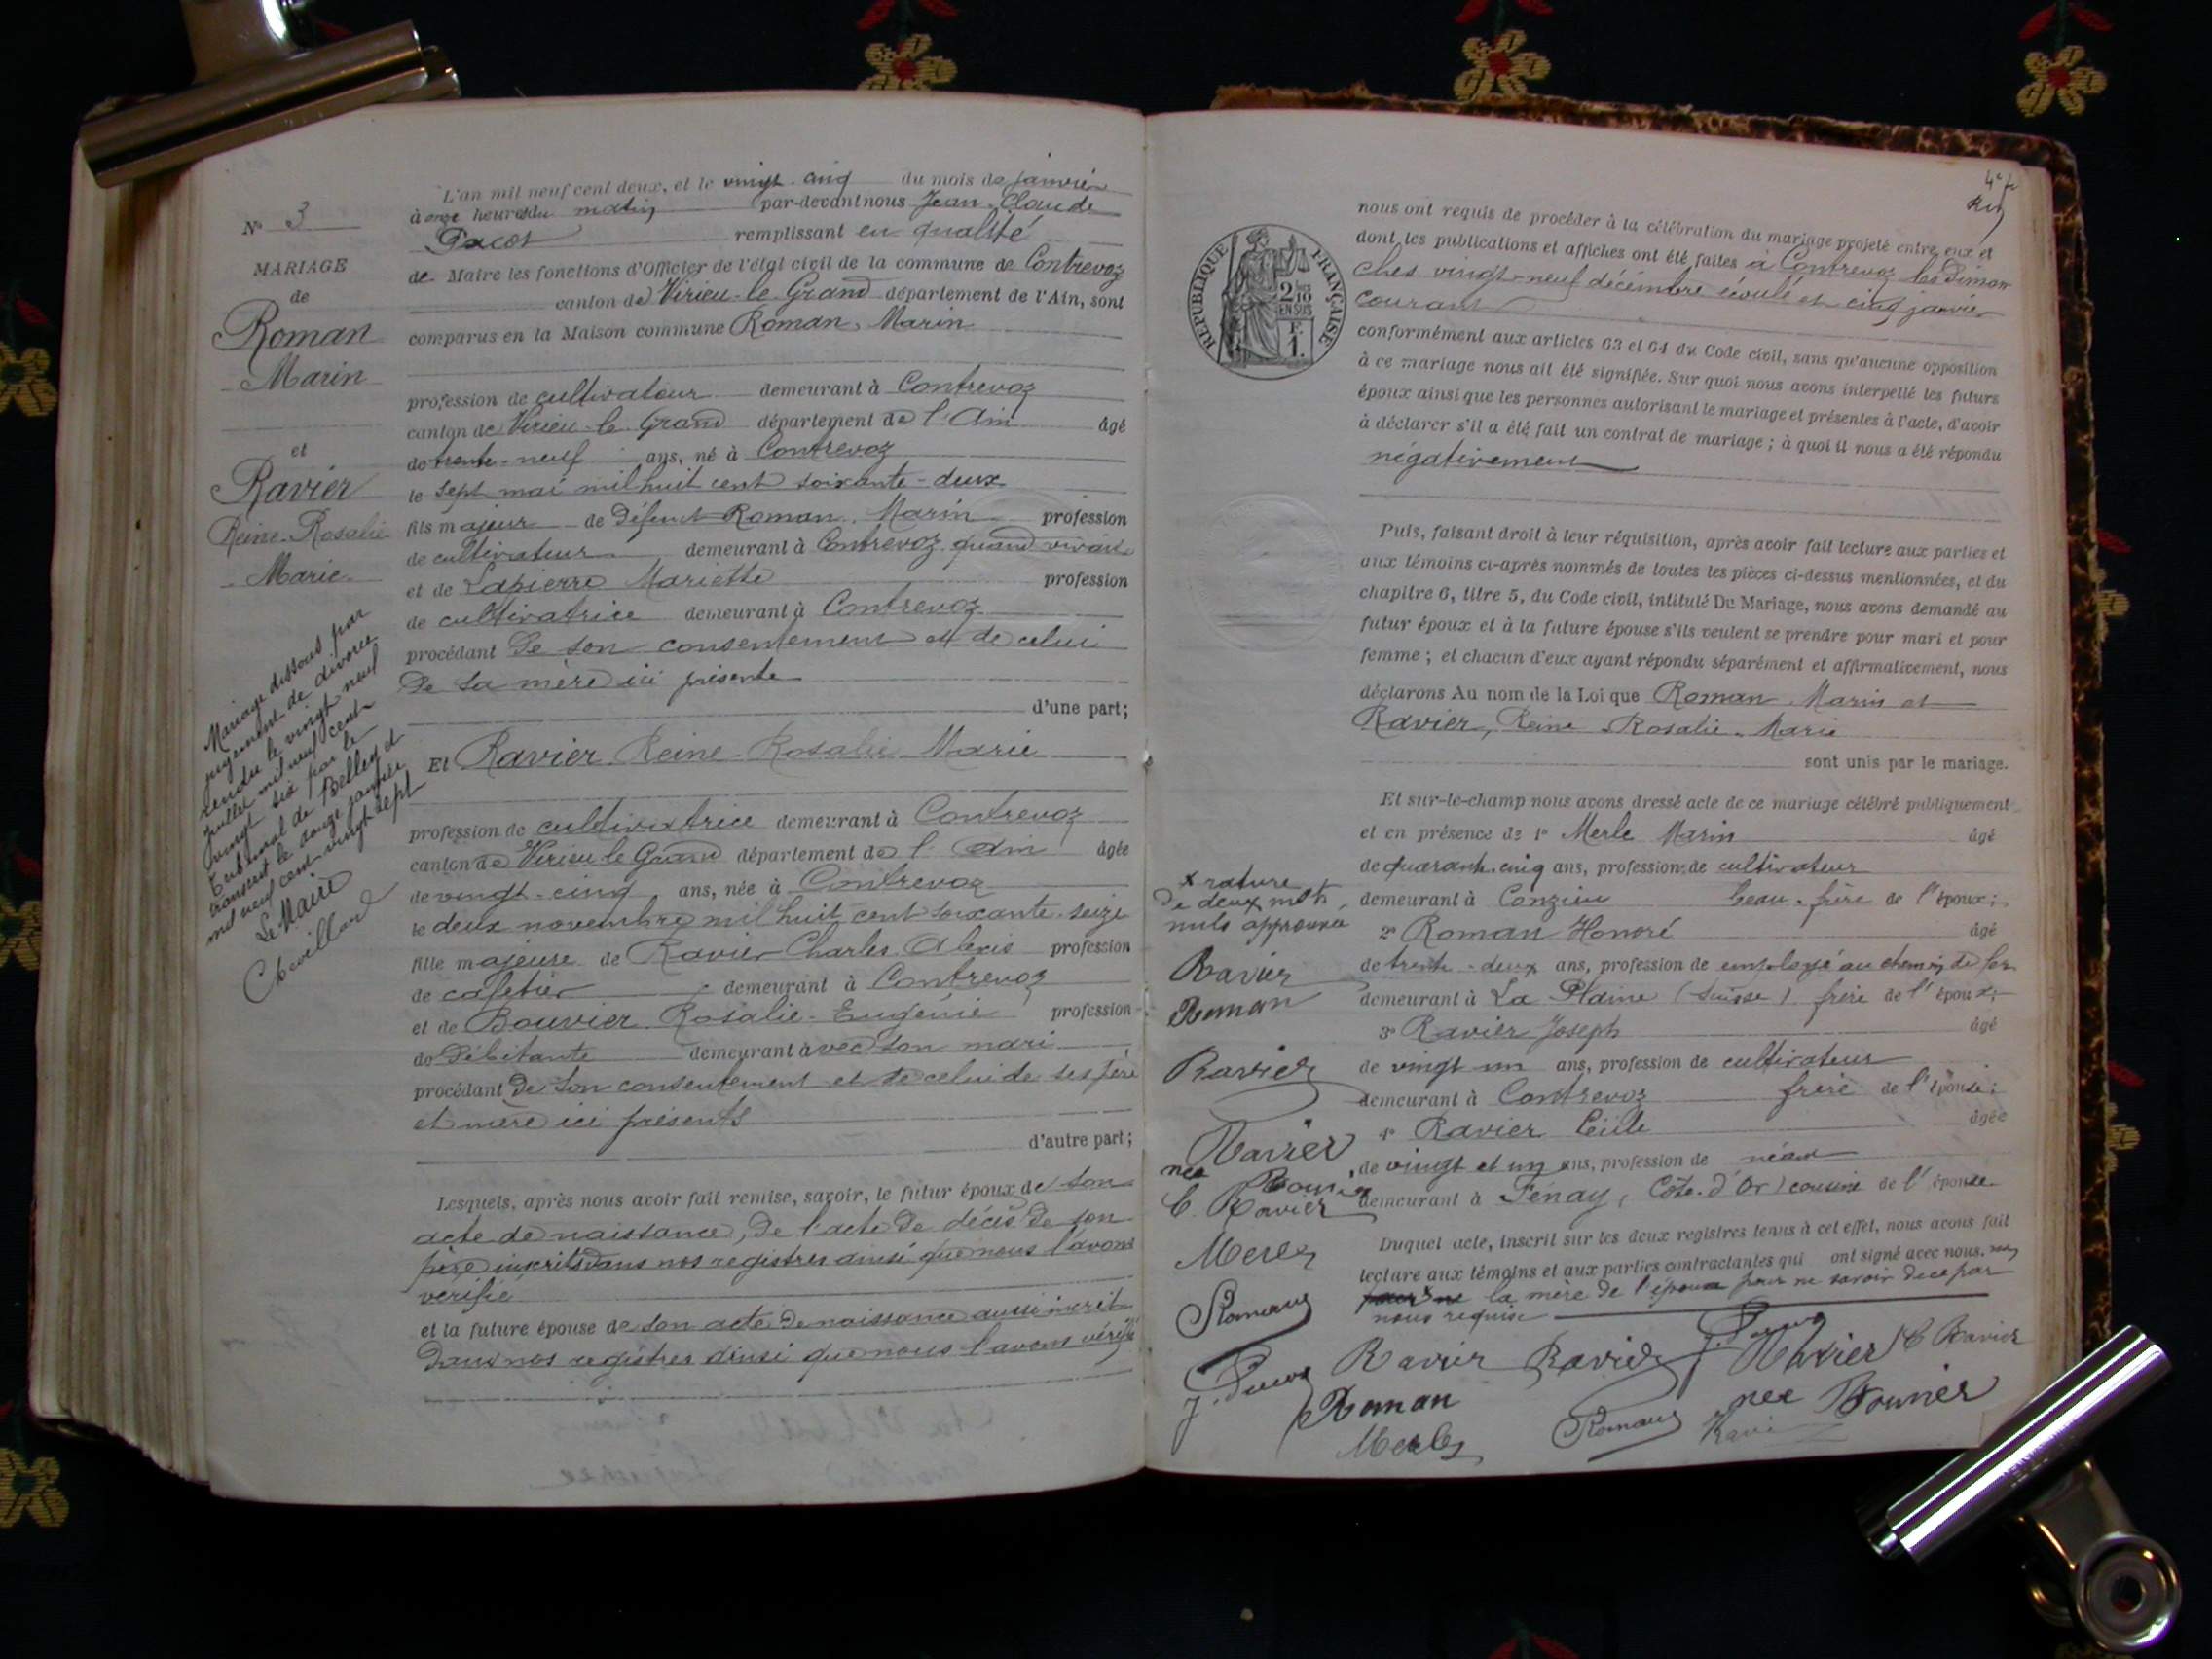 N° 3
MARIAGE
de
Roman
Marin
et
Ravier
Reine-Rosalie
Marie
Mariage dissous par
jugement de divorce
rendu le vingt neuf
juillet mil neuf cent
vingt six par le
tribunal de Belley et
transcrit le douze janvier
mil neuf cent vingt sept
Le Maire
Chevillard
L'an mil neuf cent deux, et le vingt-cinq du mois de janvier
à onze heures du matin par-devant nous Jean-Claude
remplissant en qualité
de Maire les fonctions d'Officier de l'état civil de la commune de Contrevoz
canton de Virieu-le-Grand département de l'Ain, sont
comparus en la Maison commune Roman, Marin
profession de cultivateur demeurant à Contrevoz
canton de Virieu-le-Grand département de l'Ain âgé
de trente-neuf ans, né à Contrevoz
le sept mai mil huit cent soixante-deux
fils majeur de défunt Roman, Marin profession
de cultivateur demeurant à Contrevoz quand vivait
et de Lapierre Mariette profession
de cultivatrice demeurant à Contrevoz
procédant de son consentement et de celui
de sa mère ici présente
d'une part;
Et Ravier Reine-Rosalie Marie
profession de cultivatrice demeurant à Contrevoz
canton de Virieu le Grand département de l'Ain âgée
de vingt-cinq ans, née à Contrevoz
le deux novembre mil huit cent soixante-seize
fille majeure de Ravier Charles Alexis profession
de cafetier demeurant à Contrevoz
et de Bouvier Rosalie-Eugénie profession
de débitante demeurant avec son mari
procédant de son consentement et de celui de ses père
et mère ici présents
d'autre part;
Lesquels, après nous avoir fait remise, savoir, le futur époux de son
acte de naissance, de l'acte de décès de son
père inscrits dans nos registres ainsi que nous l'avons
vérifié
et la future épouse de son acte de naissance aussi inscrit
dans nos registres ainsi que nous l'avons vérifié
RÉPUBLIQUE FRANÇAISE
2/10
EN SUS
1 F.
nous ont requis de procéder à la célébration du mariage projeté entre eux et
dont les publications et affiches ont été faites à Contrevoz les diman
ches vingt-neuf décembre écoulé et cinq janvier
courant
conformément aux articles 63 et 64 du Code civil, sans qu'aucune opposition
à ce mariage nous ait été signifiée. Sur quoi nous avons interpellé les futurs
époux ainsi que les personnes autorisant le mariage et présentes à l'acte, d'avoir
à déclarer s'il a été fait un contrat de mariage ; à quoi il nous a été répondu
négativement
Puis, faisant droit à leur réquisition, après avoir fait lecture aux parties et
aux témoins ci-après nommés de toutes les pièces ci-dessus mentionnées, et du
chapitre 6, titre 5, du Code civil, intitulé Du Mariage, nous avons demandé au
futur époux et à la future épouse s'ils veulent se prendre pour mari et pour
femme ; et chacun d'eux ayant répondu séparément et affirmativement, nous
déclarons Au nom de la Loi que Roman Marin et
Ravier, Reine-Rosalie-Marie
sont unis par le mariage.
Et sur-le-champ nous avons dressé acte de ce mariage célébré publiquement
et en présence de 1° Merle Marin âgé
de quarante-cinq ans, profession de cultivateur
demeurant à Conzieu beau-frère de l'époux;
2° Roman Honoré âgé
de trente-deux ans, profession de employé au chemin de fer
demeurant à La Plaine (Suisse) frère de l'époux;
3° Ravier Joseph âgé
de vingt un ans, profession de cultivateur
demeurant à Contrevoz frère de l'épouse;
4° Ravier Cécile âgée
de vingt et un ans, profession de néant
demeurant à Fénay, (Côte-d'Or) cousine de l'épouse.
Duquel acte, inscrit sur les deux registres tenus à cet effet, nous avons fait
lecture aux témoins et aux parties contractantes qui ont signé avec nous, non
la mère de l'époux pour ne savoir de ce par
nous requise
x rature
de deux mots
nuls approuvée
Ravier
Roman
Ravier
Ravier
née Bouvier
C. Ravier
Merle
Roman
Ravier Ravier Ravier C Ravier
Roman Roman née Bouvier
Merle